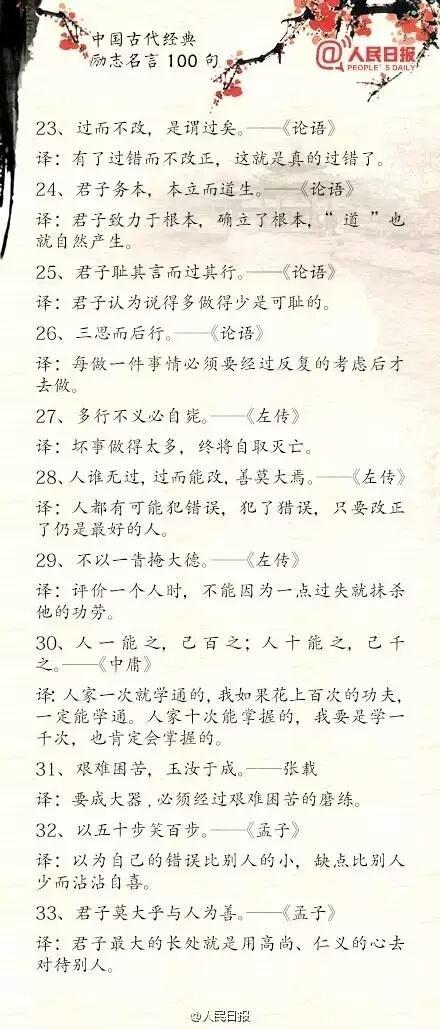 中国古代经典
励志名言 100 句
@人民日报
PEOPLE'S DAILY
23、过而不改，是谓过矣。——《论语》
译：有了过错而不改正，这就是真的过错了。
24、君子务本，本立而道生。——《论语》
译：君子致力于根本，确立了根本，“道”也
就自然产生。
25、君子耻其言而过其行。——《论语》
译：君子认为说得多做得少是可耻的。
26、三思而后行。——《论语》
译：每做一件事情必须要经过反复的考虑后才
去做。
27、多行不义必自毙。——《左传》
译：坏事做得太多，终将自取灭亡。
28、人谁无过，过而能改，善莫大焉。——《左传》
译：人都有可能犯错误，犯了猎误，只要改正
了仍是最好的人。
29、不以一眚掩大德。——《左传》
译：评价一个人时，不能因为一点过失就抹杀
他的功劳。
30、人一能之，己百之；人十能之，己千
之。——《中庸》
译：人家一次就学通的，我如果花上百次的功夫，
一定能学通。人家十次能掌握的，我要是学一
千次，也肯定会掌握的。
31、艰难困苦，玉汝于成。——张载
译：要成大器，必须经过艰难困苦的磨练。
32、以五十步笑百步。——《孟子》
译：以为自己的错误比别人的小，缺点比别人
少而沾沾自喜。
33、君子莫大乎与人为善。——《孟子》
译：君子最大的长处就是用高尚、仁义的心去
对待别人。
@人民日报